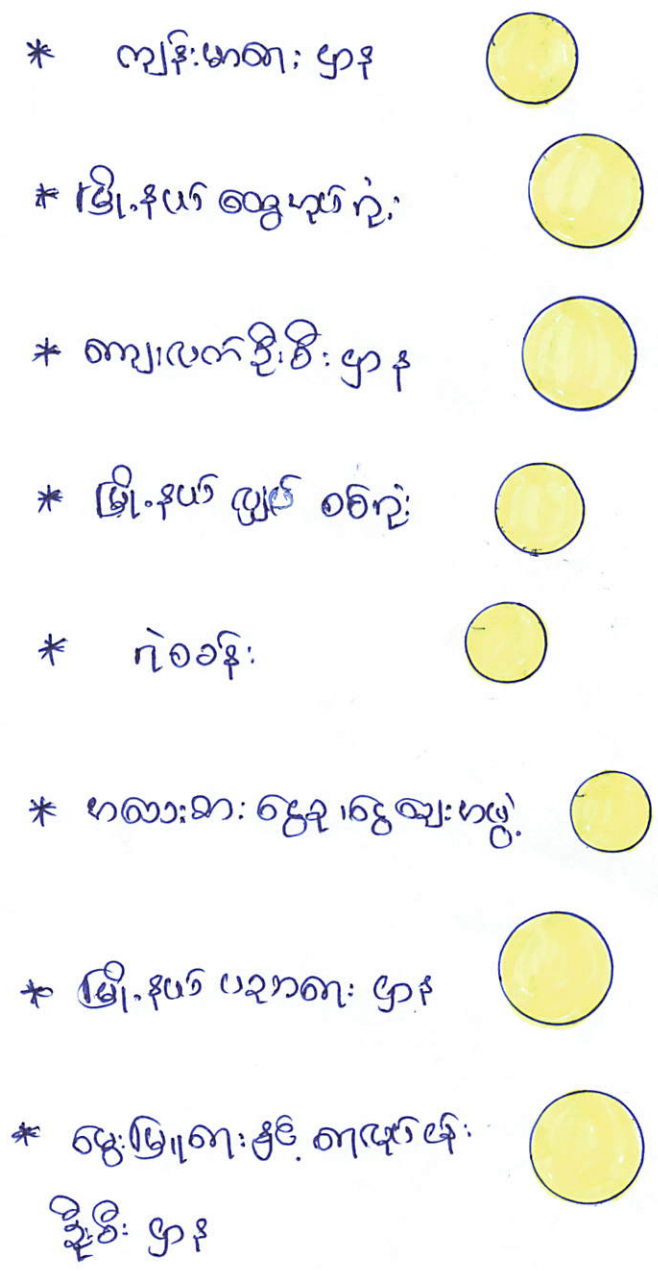 * ကျန်းမာရေး ဌာန
* မြို့နယ် ထွေအုပ် ရုံး
* ကျေးလက် ဦးစီး ဌာန
* မြို့နယ် လျှပ် စစ်ရုံး
* ရဲစခန်း
* အသေးစား ငွေစု၊ ငွေချေးအဖွဲ့
* မြို့နယ် ပညာရေး ဌာန
* မွေးမြူရေးနှင့် ရေလုပ်ငန်း
ဦးစီး ဌာန